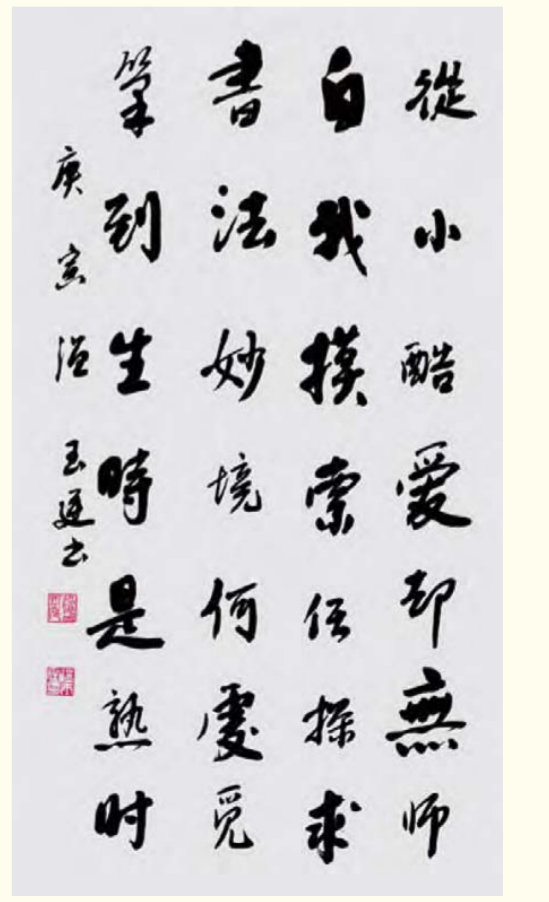 從小酷愛却無師
自我摸索任探求
書法妙境何處觅
筆到生時是熟时
庚寅 玉廷书